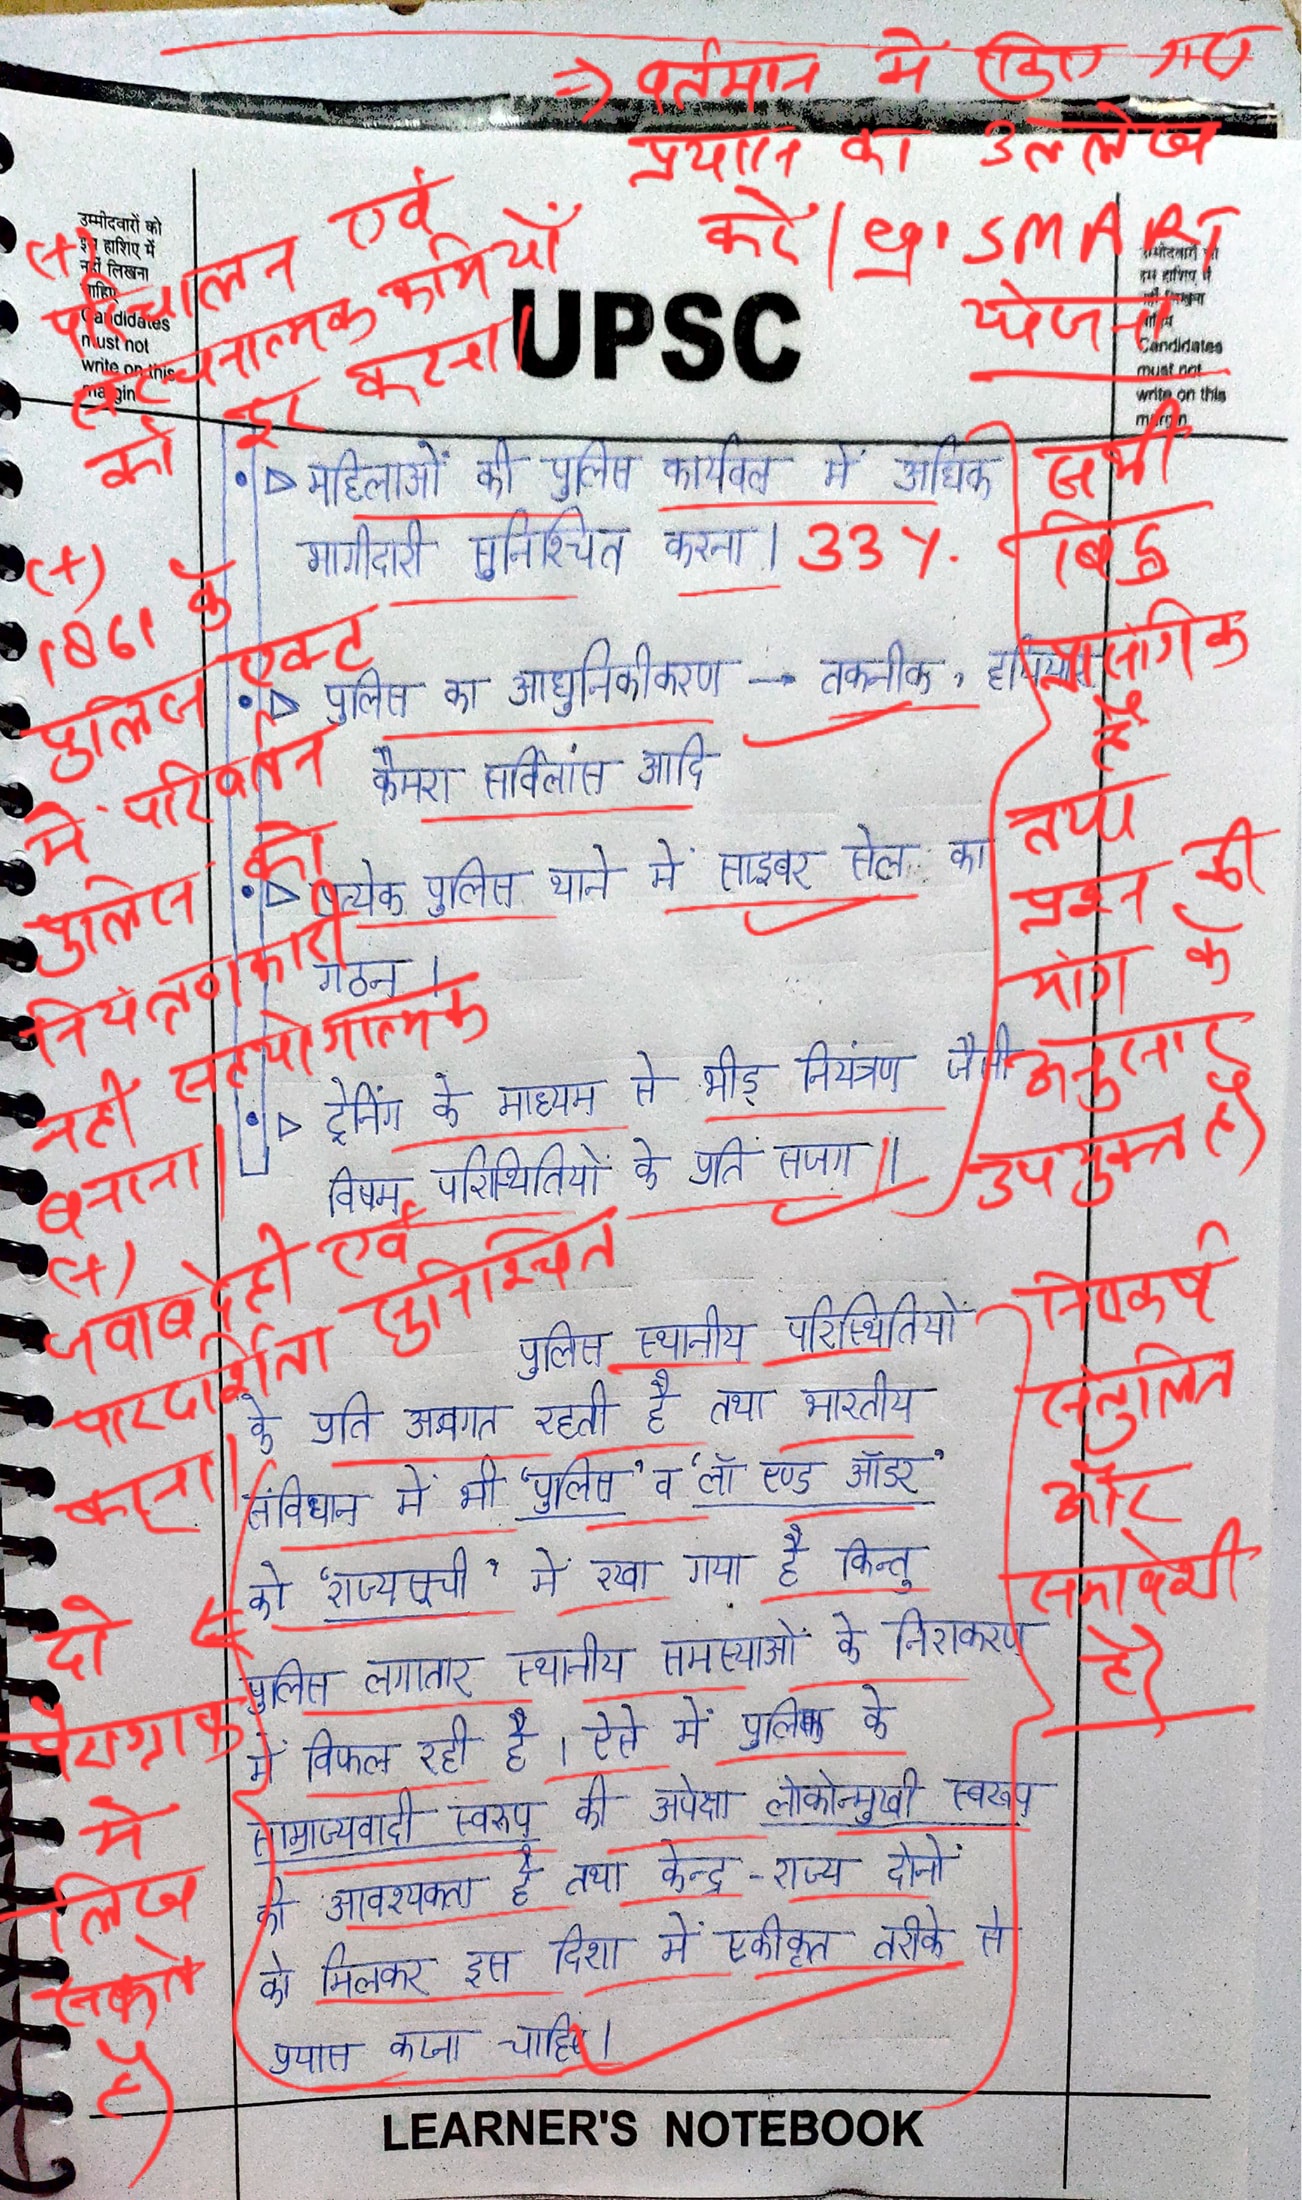 ⇒ वर्तमान में किए गए
प्रयास का उल्लेख
करें। eg. SMART
योजना
उम्मीदवारों को
इस हाशिए में
नहीं लिखना
चाहिए
Candidates
must not
write on this
margin
(+)
परिचालन एवं
संरचनात्मक कमियों
को दूर करना।
UPSC
उम्मीदवारों को
इस हाशिए में
नहीं लिखना
चाहिए
Candidates
must not
write on this
margin
• ▷ महिलाओं की पुलिस कार्यबल में अधिक
भागीदारी सुनिश्चित करना। 33%.
• ▷ पुलिस का आधुनिकीकरण → तकनीक, हथियार,
कैमरा सर्विलांस आदि
• ▷ प्रत्येक पुलिस थाने में साइबर सेल का
गठन।
• ▷ ट्रेनिंग के माध्यम से भीड़ नियंत्रण जैसी
विषम परिस्थितियों के प्रति सजग।
(+)
1861 के
पुलिस एक्ट
में परिवर्तन
पुलिस को
नियंत्रणकारी
नहीं सहयोगात्मक
बनाना।
(+)
जवाबदेही एवं
पारदर्शिता सुनिश्चित
करना।
सभी
बिंदु
प्रासंगिक
हैं
तथा
प्रश्न की
मांग के
अनुसार
उपयुक्त है।
पुलिस स्थानीय परिस्थितियों
के प्रति अवगत रहती है तथा भारतीय
संविधान में भी 'पुलिस' व 'लॉ एण्ड ऑडर'
को 'राज्यसूची' में रखा गया है किन्तु
पुलिस लगातार स्थानीय समस्याओं के निराकरण
में विफल रही है। ऐसे में पुलिस के
साम्राज्यवादी स्वरूप की अपेक्षा लोकोन्मुखी स्वरूप
की आवश्यकता है तथा केन्द्र-राज्य दोनों
को मिलकर इस दिशा में एकीकृत तरीके से
प्रयास करना चाहिए।
दो
पैराग्राफ
में
लिख
सकते
हैं।
निष्कर्ष
संतुलित
और
समावेशी
है।
LEARNER'S NOTEBOOK